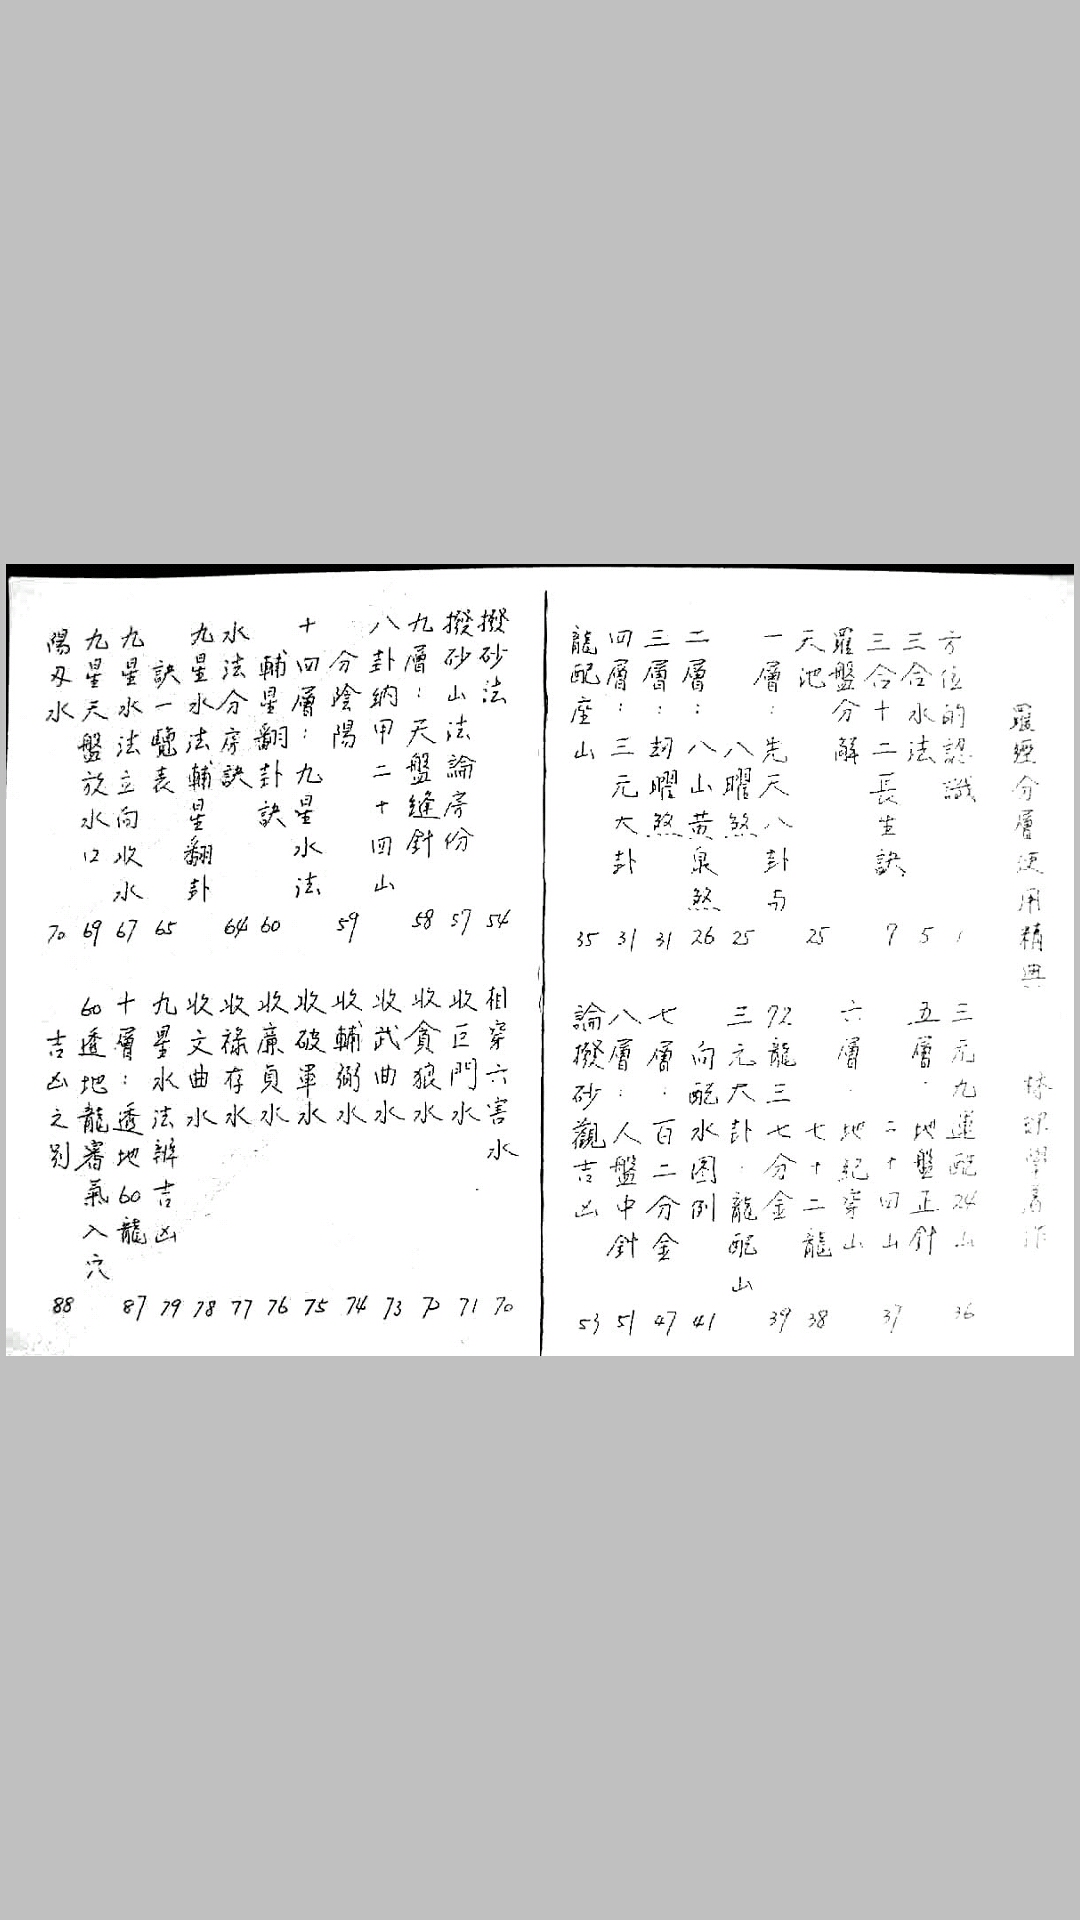 羅經分層使用精典
林 學着作
方位的認識 1
三合水法 5
三合十二長生訣 7
羅盤分解
天池 25
一層：先天八卦与
八曜煞 25
二層：八山黃泉煞 26
三層：劫曜煞 31
四層：三元大卦 31
龍配座山 35
三元九運配24山 36
五層．地盤正針
二十四山 37
六層．地紀穿山
七十二龍 38
72龍三七分金 39
三元大卦．龍配山
向配水图例 41
七層：百二分金 47
八層：人盤中針 51
論撥砂觀吉凶 53
撥砂法 54
撥砂山法論房份 57
九層：天盤縫針 58
八卦納甲二十四山
分陰陽 59
十四層：九星水法
輔星翻卦訣 60
水法分房訣 64
九星水法輔星翻卦
訣一覽表 65
九星水法立向收水 67
九星天盤放水口 69
陽刃水 70
相穿六害水 70
收巨門水 71
收貪狼水 72
收武曲水 73
收輔弼水 74
收破軍水 75
收廉貞水 76
收祿存水 77
收文曲水 78
九星水法辨吉凶 79
十層：透地60龍 87
60透地龍審氣入穴
吉凶之別 88